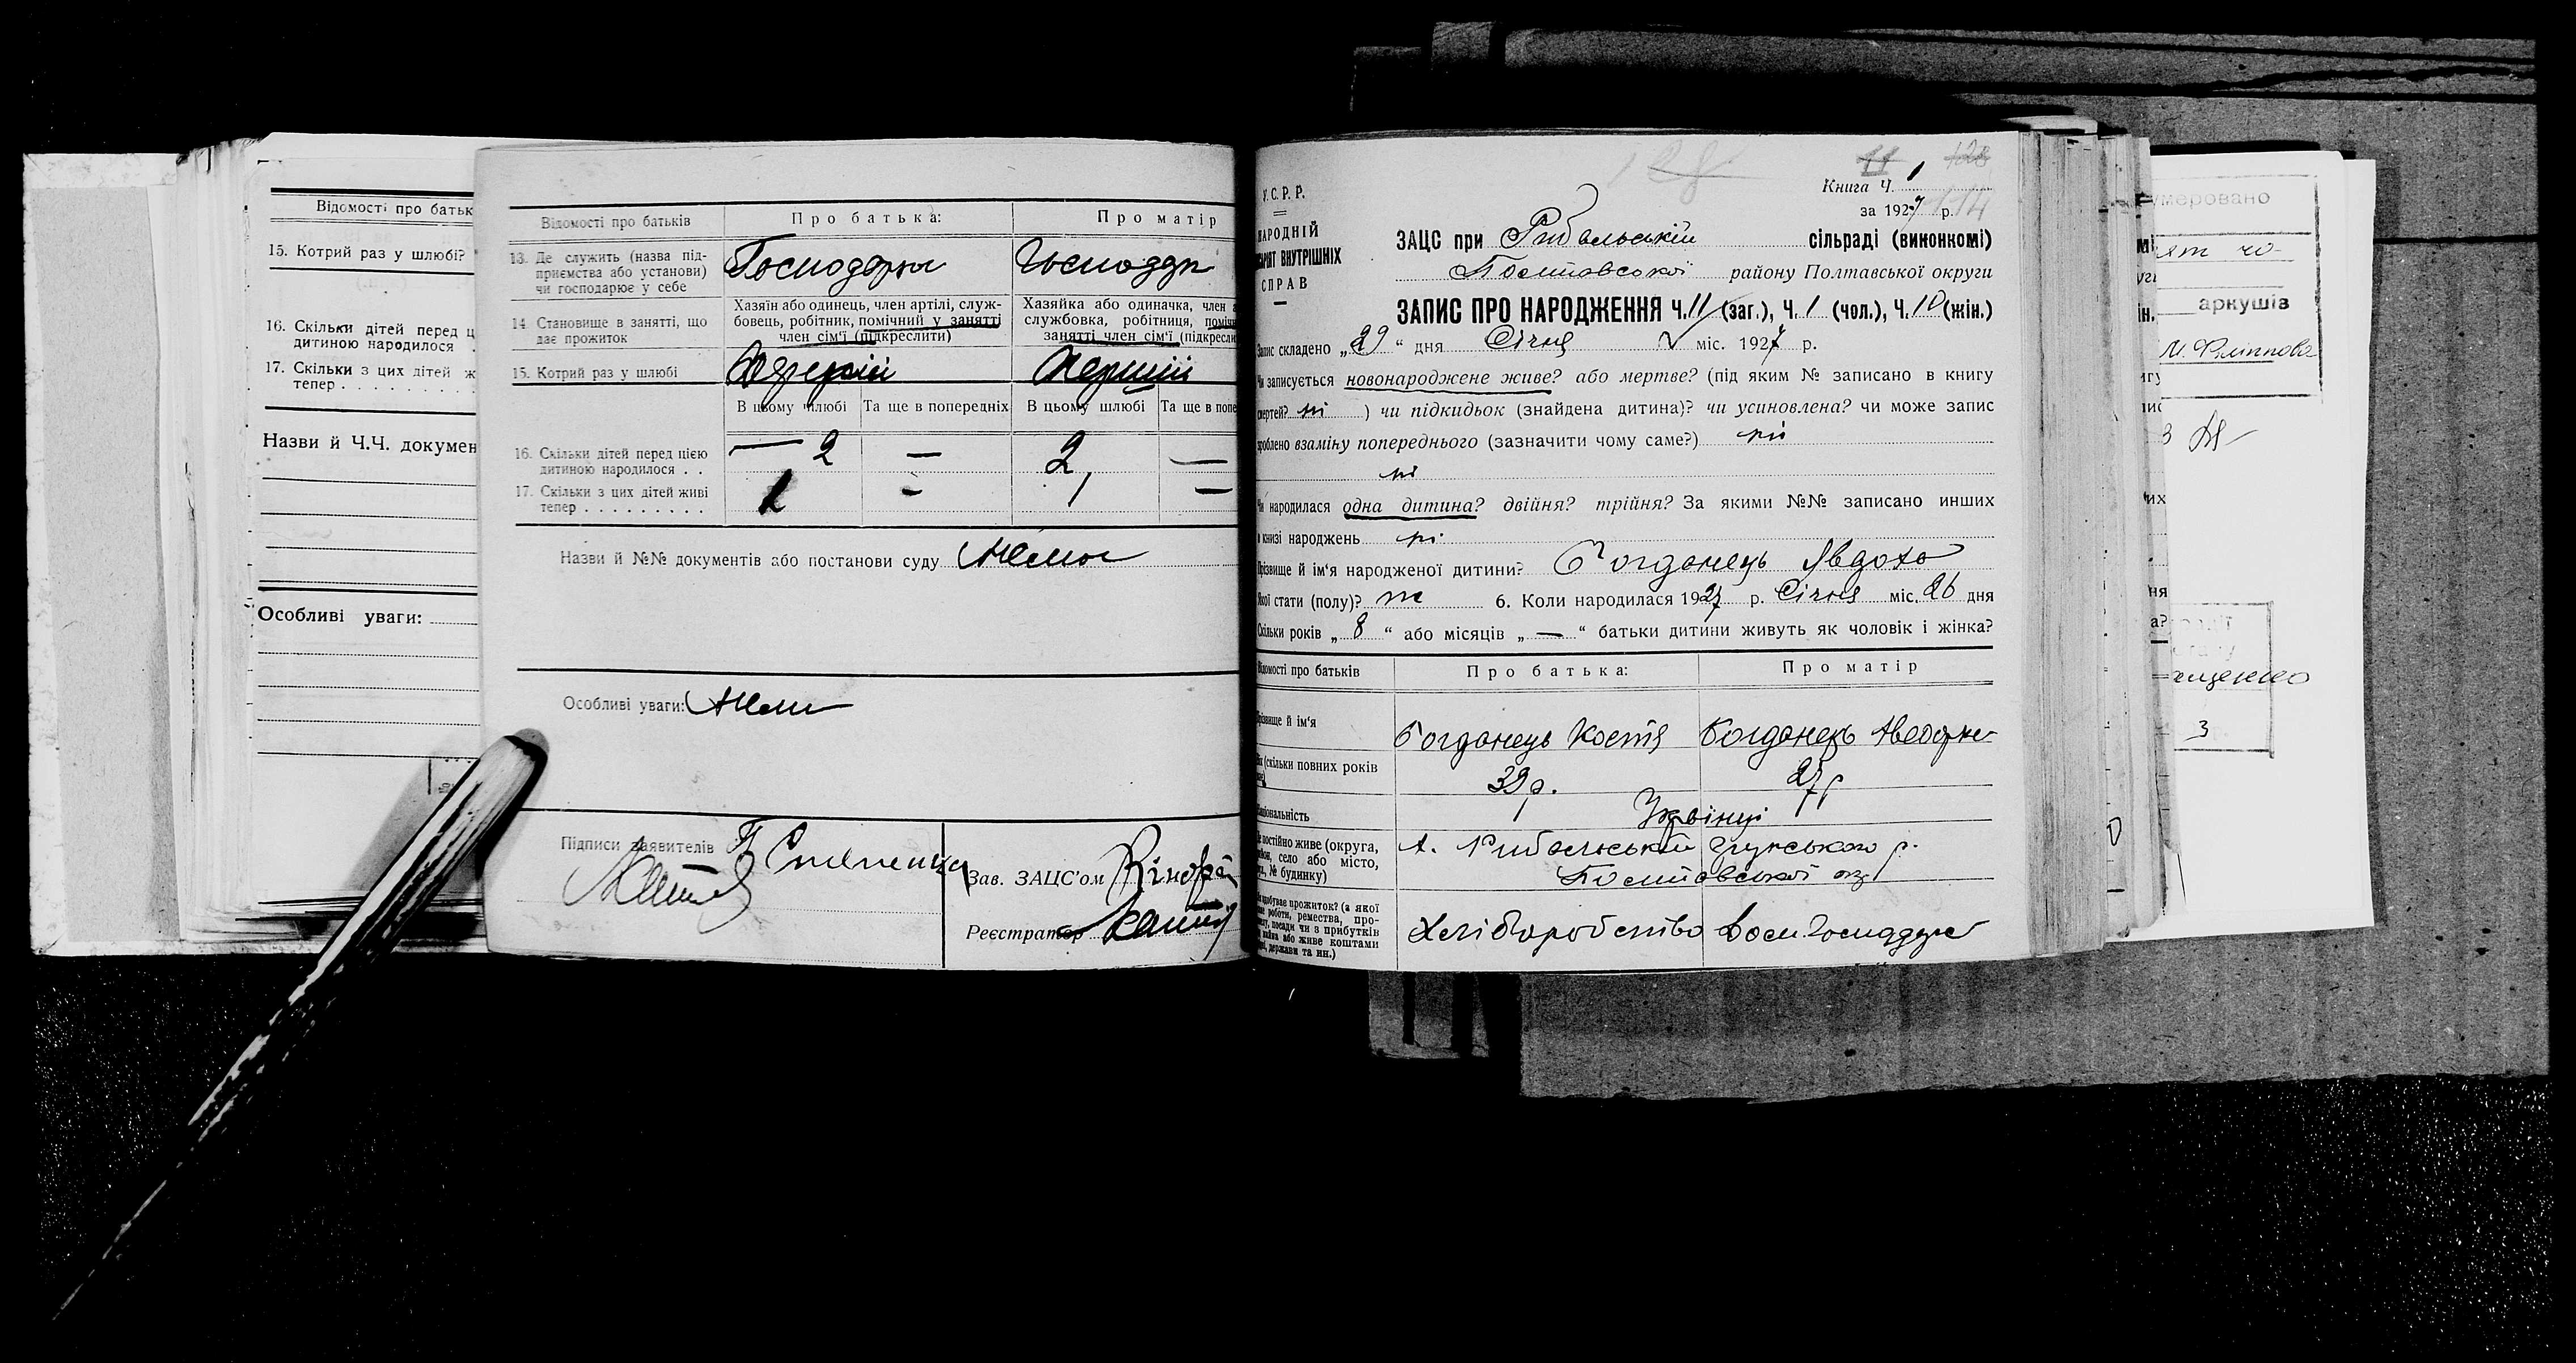 Відомості про батьк
15. Котрий раз у шлюбі?
16. Скільки дітей перед ц
дитиною народилося
17. Скільки з цих дітей ж
тепер
Назви й Ч.Ч. докумен
Особливі уваги:
Відомості про батьків
Про батька:
Про матір
13. Де служить (назва під-
приємства або установи)
чи господарює у себе
14. Становище в занятті, що
дає прожиток
Хазяїн або одинець, член артілі, служ-
бовець, робітник, помічний у занятті
член сім'ї (підкреслити)
Хазяйка або одиначка, член а
службовка, робітниця, поміч
занятті член сім'ї (підкресли
15. Котрий раз у шлюбі
Перший
В цьому шлюбі
Та ще в попередніх
В цьому шлюбі
Та ще в попе
16. Скільки дітей перед цією
дитиною народилося . .
— 2 — 2 —
17. Скільки з цих дітей живі
тепер
1 - 1 —
Назви й №№ документів або постанови суду Нема
Особливі уваги: Нема
Підписи заявителів
Зав. ЗАЦС'ом
Реєстратор
У.С.Р.Р.
НАРОДНІЙ
САРІЯТ ВНУТРІШНІХ
СПРАВ
128
11 128
Книга Ч. 1
за 1927 р. 114
ЗАЦС при Рибальській сільраді (виконкомі)
району Полтавської округи
ЗАПИС ПРО НАРОДЖЕННЯ Ч. 11 (заг.), Ч. 1 (чол.), Ч. 10 (жін.)
Запис складено „29“ дня Січня міс. 1927 р.
Чи записується новонароджене живе? або мертве? (під яким № записано в книгу
смертей? ні ) чи підкидьок (знайдена дитина)? чи усиновлена? чи може запис
зроблено взаміну попереднього (зазначити чому саме?) ні
ні
Чи народилася одна дитина? двійня? трійня? За якими №№ записано инших
в книзі народжень ні
Прізвище й ім'я народженої дитини? Богданець Явдоха
Якої стати (полу)? ж 6. Коли народилася 1927 р. Січня міс. 26 дня
Скільки років „8“ або місяців „—“ батьки дитини живуть як чоловік і жінка?
Відомості про батьків
Про батька:
Про матір
Прізвище й ім'я
Богданець Костя
Богданець
Вік (скільки повних років
39 р.
27 р
Національність
Українці
Де постійно живе (округа,
район, село або місто,
№ будинку)
х. Рибальський р.
Полтавської окр
здобуває прожиток? (з якої
роботи, ремества, про-
мислу, посади чи з прибутків
майна або живе коштами
держави та ин.)
Хліборобство
Дом. Господарс
умеровано
аркушів
3